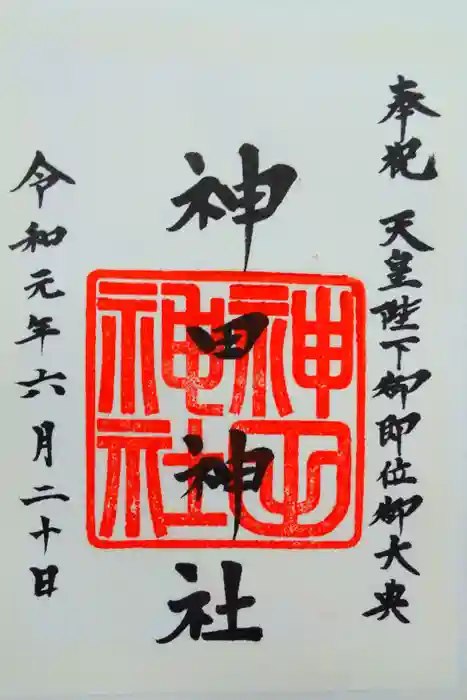 奉祝 天皇陛下御即位御大典
神田神社
神田神社
令和元年六月二十日